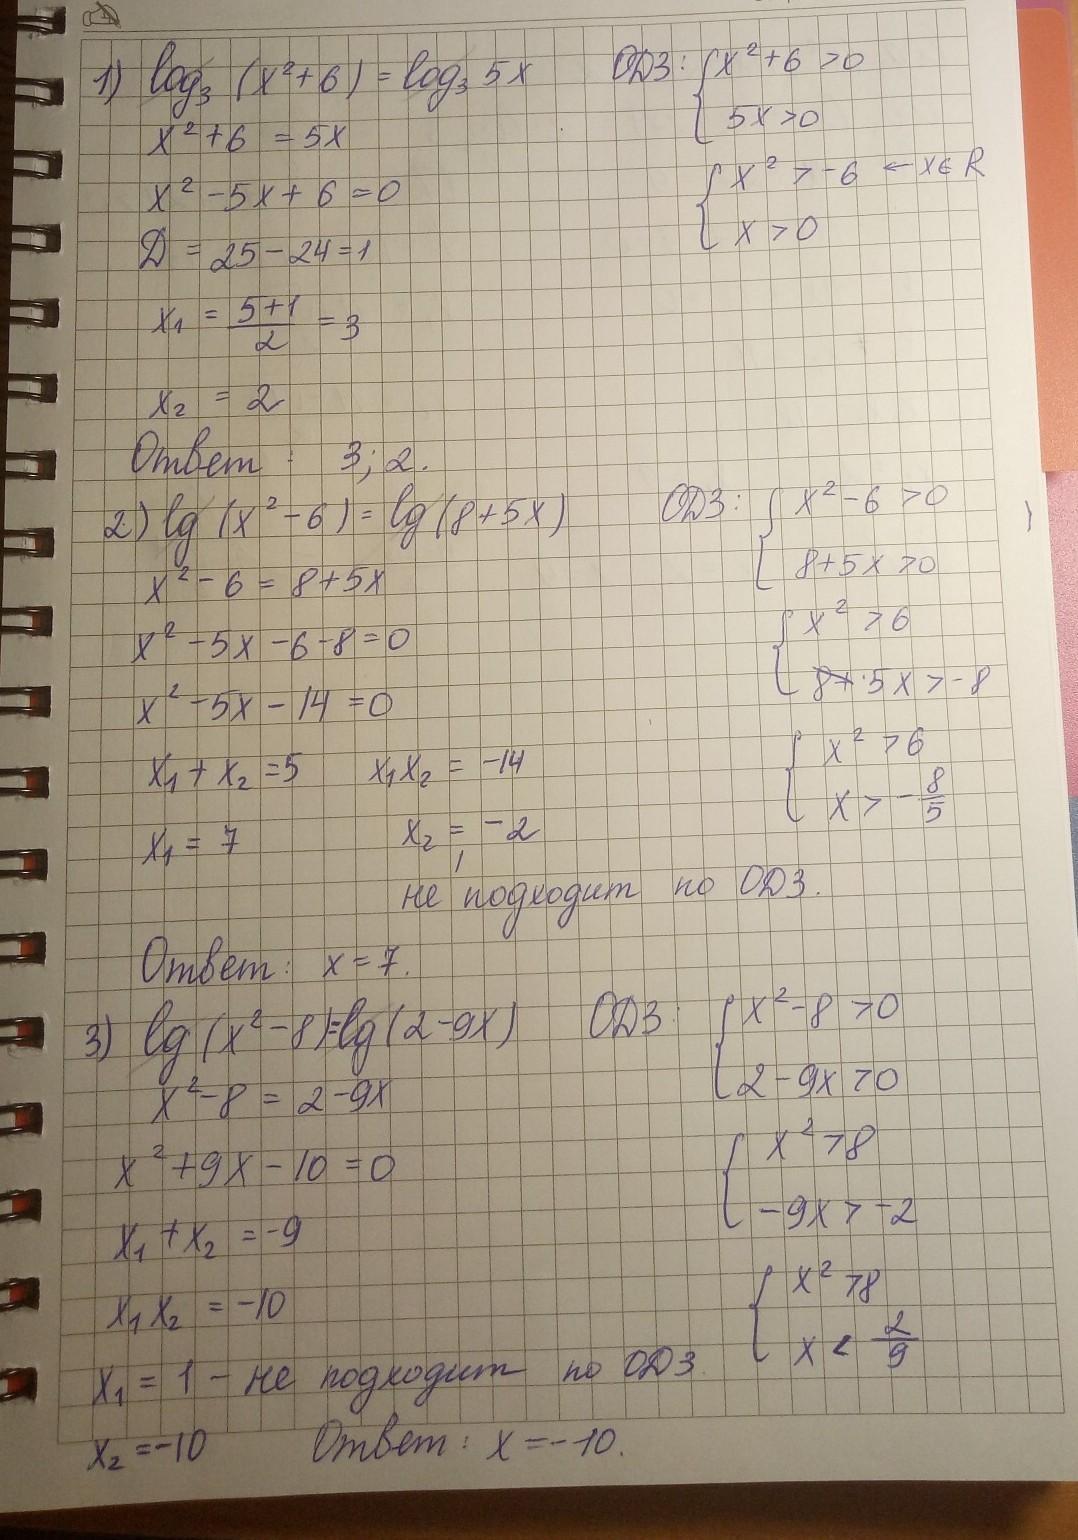 1) log₃ (x²+6) = log₃ 5x ОДЗ: { x²+6 >0
5x>0
x²+6 = 5x
{ x² > -6 ← x∈R
x² -5x+6=0
x >0
D = 25-24=1
x₁ = (5+1)/2 = 3
x₂ = 2
Ответ : 3; 2.
2) lg (x²-6) = lg (8+5x) ОДЗ: { x²-6 >0
8+5x >0
x²-6 = 8+5x
{ x² >6
x² -5x-6-8=0
8+ 5x > -8
x²-5x-14=0
{ x² >6
x₁+x₂=5 x₁x₂ = -14
x > -8/5
x₁ = 7 x₂ = -2
не подходит по ОДЗ.
Ответ: x=7.
3) lg (x²-8)=lg(2-9x) ОДЗ: { x²-8 >0
2-9x >0
x²-8 = 2-9x
{ x² >8
x²+9x-10=0
-9x > -2
x₁+x₂=-9
{ x² >8
x₁x₂ = -10
x < 2/9
x₁ = 1 - не подходит по ОДЗ.
x₂=-10 Ответ: x=-10.